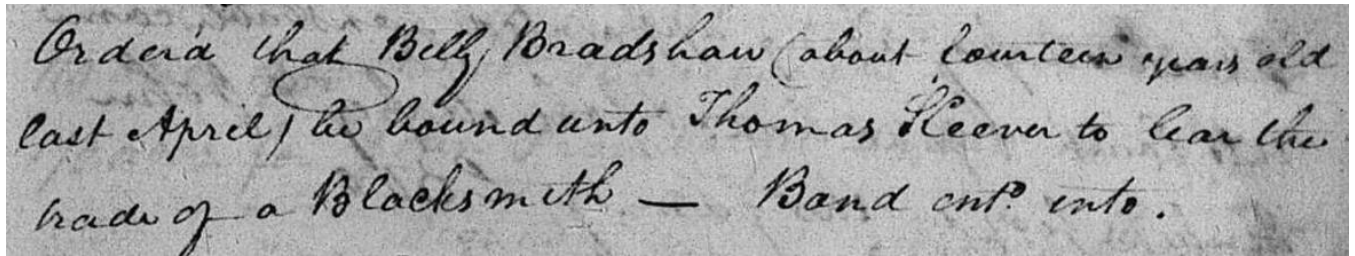 Orderd that Billy Bradshaw (about fourteen years old
last April) be bound unto Thomas Keever to lear the
trade of a Blacksmith — Bond entd. into.